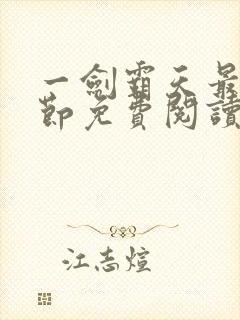 一劍霸天最
節免費閱讀
江志煊